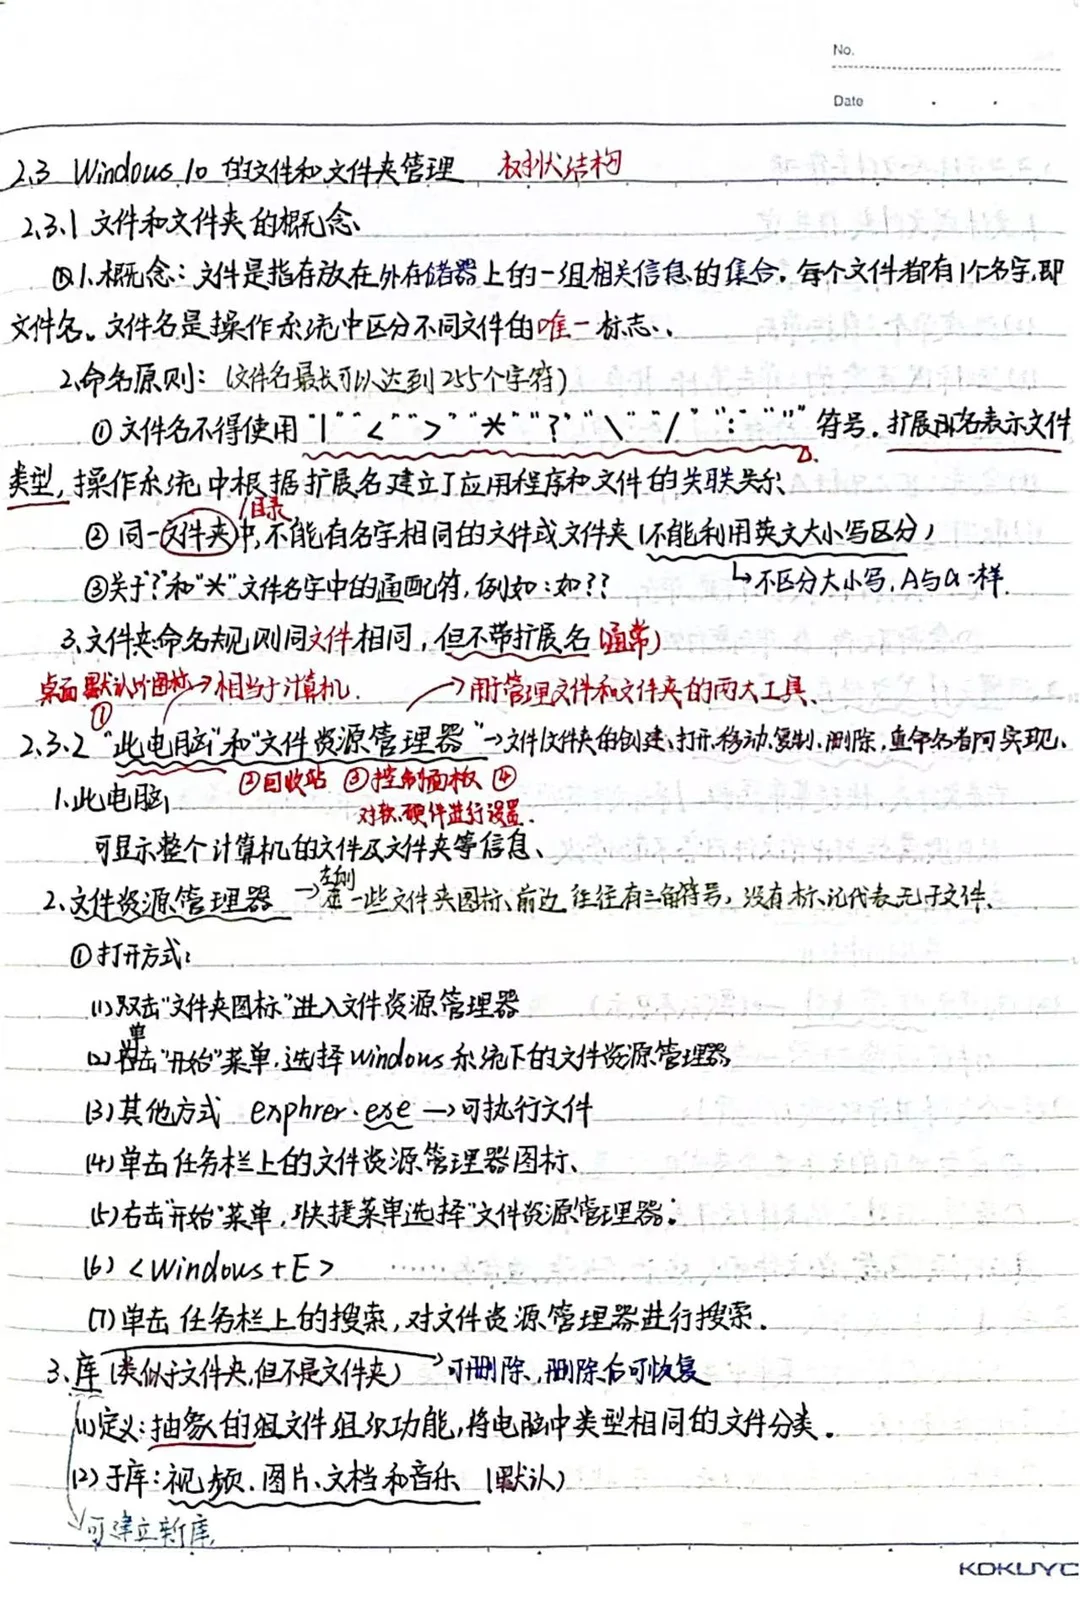 No.
Date
2.3 Windows 10 的文件和文件夹管理 树状结构
2.3.1 文件和文件夹的概念
1.概念：文件是指存放在外存储器上的一组相关信息的集合。每个文件都有1个名字,即
文件名。文件名是操作系统中区分不同文件的唯一标志、
2.命名原则：(文件名最长可以达到255个字符)
①文件名不得使用"|""<"">""*""?""\""/"":"""" 符号。扩展名表示文件
类型,操作系统中根据扩展名建立了应用程序和文件的关联关系
/目录
②同一文件夹中,不能有名字相同的文件或文件夹(不能利用英文大小写区分)
③关于"?"和"*"文件名字中的通配符,例如:如?? →不区分大小写,A与a一样.
3.文件夹命名规则同文件相同,但不带扩展名(通常)
桌面默认图标→相当于计算机. →用于管理文件和文件夹的两大工具、
①
2.3.2"此电脑"和"文件资源管理器"→文件/文件夹的创建、打开、移动、复制、删除,重命名者可实现、
②回收站 ③控制面板 ④
1.此电脑 对软、硬件进行设置.
可显示整个计算机的文件及文件夹等信息、
左侧
2.文件资源管理器→在一些文件夹图标前边往往有三角符号,没有标记代表无子文件、
①打开方式:
(1)双击"文件夹图标"进入文件资源管理器
单
(2)击"开始"菜单,选择windows系统下的文件资源管理器
(3)其他方式 exphrer.exe→可执行文件
(4)单击任务栏上的文件资源管理器图标、
(5)右击"开始"菜单,快捷菜单选择"文件资源管理器:
(6)<Windows+E> ……
(7)单击任务栏上的搜索,对文件资源管理器进行搜索.
3.库(类似于文件夹,但不是文件夹)→可删除,删除后可恢复
(1)定义:抽象的组文件组织功能,将电脑中类型相同的文件分类.
(2)子库:视频、图片、文档和音乐 (默认)
可建立新库.
KOKUYO